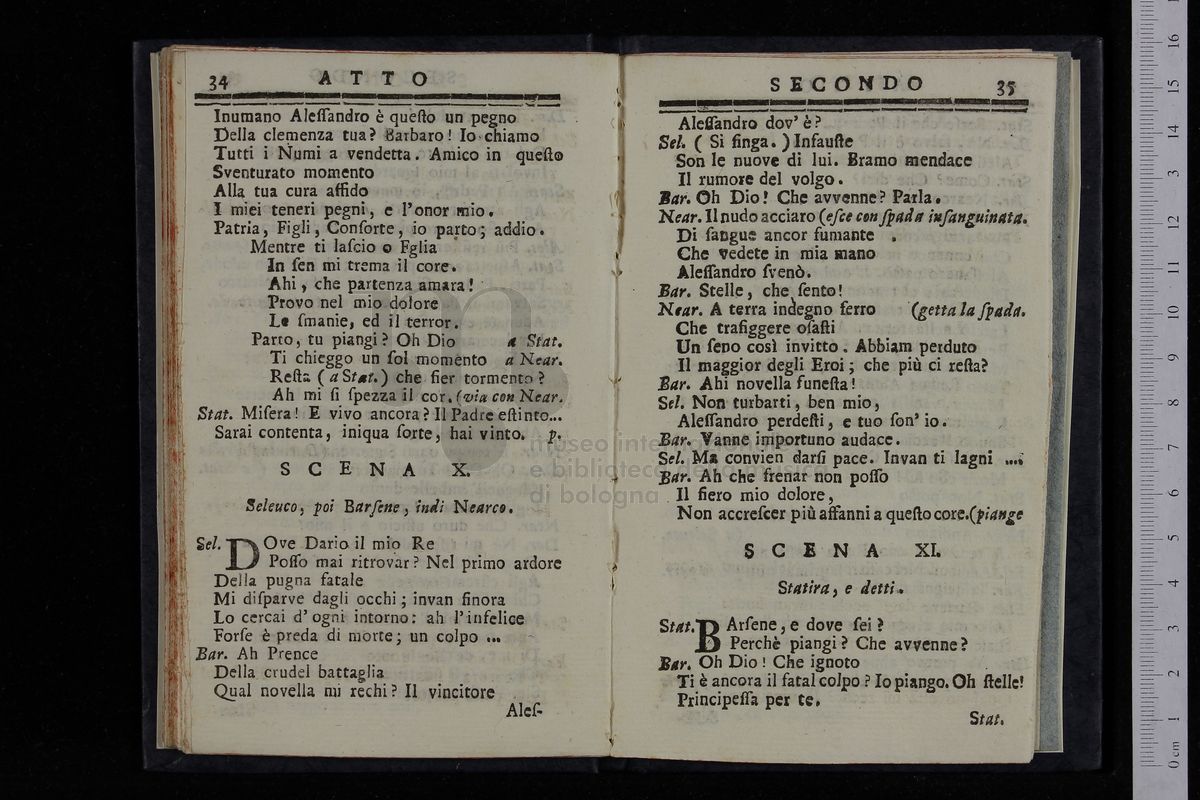 34 ATTO
Inumano Aleſſandro è queſto un pegno
Della clemenza tua? Barbaro! Io chiamo
Tutti i Numi a vendetta. Amico in queſto
Sventurato momento
Alla tua cura affido
I miei teneri pegni, e l'onor mio.
Patria, Figli, Conſorte, io parto; addio.
Mentre ti laſcio o Fglia
In ſen mi trema il core.
Ahi, che partenza amara!
Provo nel mio dolore
Le ſmanie, ed il terror.
Parto, tu piangi? Oh Dio a Stat.
Ti chieggo un ſol momento a Near.
Reſta (a Stat.) che fier tormento?
Ah mi ſi ſpezza il cor. (via con Near.
Stat. Miſera! E vivo ancora? Il Padre eſtinto...
Sarai contenta, iniqua ſorte, hai vinto. p.
SCENA X.
Seleuco, poi Barſene, indi Nearco.
Sel. DOve Dario il mio Re
Poſſo mai ritrovar? Nel primo ardore
Della pugna fatale
Mi diſparve dagli occhi; invan finora
Lo cercai d' ogni intorno: ah l' infelice
Forſe è preda di morte; un colpo ...
Bar. Ah Prence
Della crudel battaglia
Qual novella mi rechi? Il vincitore
Aleſ-
SECONDO 35
Aleſſandro dov' è?
Sel. ( Si finga. ) Infauſte
Son le nuove di lui. Bramo mendace
Il rumore del volgo.
Bar. Oh Dio! Che avvenne? Parla.
Near. Il nudo acciaro (eſce con ſpada inſanguinata.
Di ſangue ancor fumante .
Che vedete in mia mano
Aleſſandro ſvenò.
Bar. Stelle, che ſento!
Near. A terra indegno ferro (getta la ſpada.
Che trafiggere oſaſti
Un ſeno così invitto. Abbiam perduto
Il maggior degli Eroi; che più ci reſta?
Bar. Ahi novella funeſta!
Sel. Non turbarti, ben mio,
Aleſſandro perdeſti, e tuo ſon' io.
Bar. Vanne importuno audace.
Sel. Ma convien darſi pace. Invan ti lagni ....
Bar. Ah che frenar non poſſo
Il fiero mio dolore,
Non accreſcer più affanni a queſto core. (piange
SCENA XI.
Statira, e detti.
Stat. BArſene, e dove ſei?
Perchè piangi? Che avvenne?
Bar. Oh Dio! Che ignoto
Ti è ancora il fatal colpo? Io piango. Oh ſtelle!
Principeſſa per te.
Stat.
museo inter
e biblioteca della musica
di bologna
0 cm 1 2 3 4 5 6 7 8 9 10 11 12 13 14 15 16